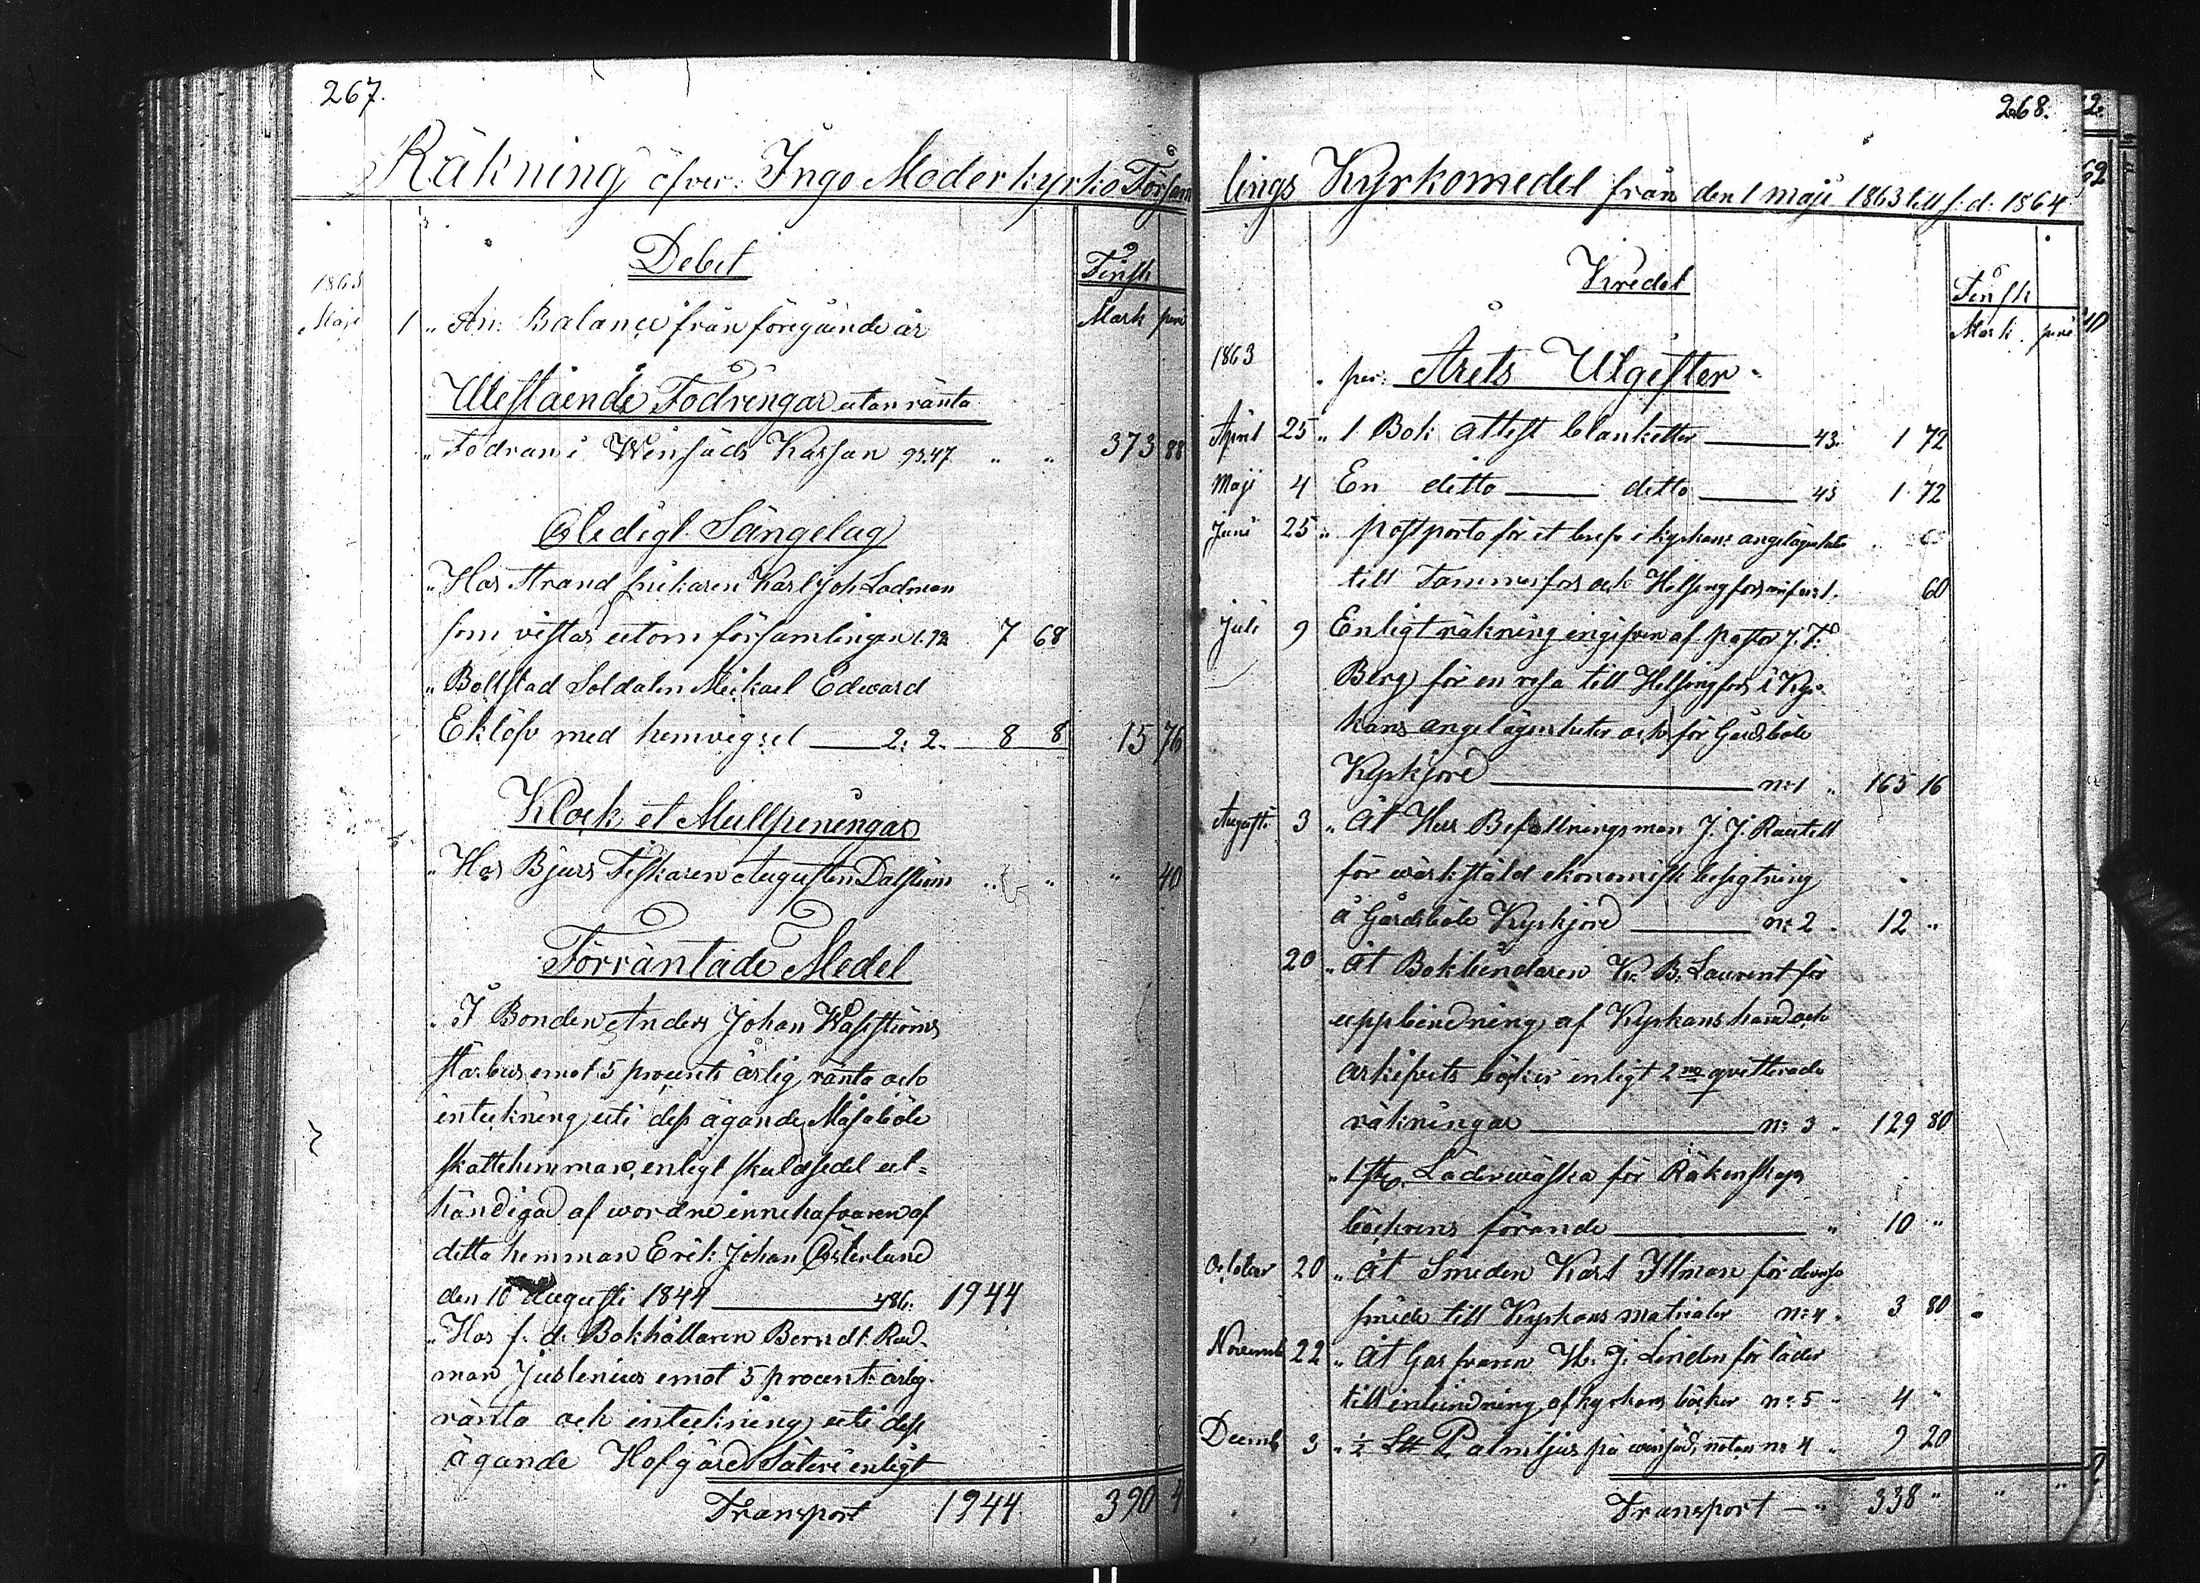 267.
Räkning öfver Ingo Moderkyrko Försam
Debet
Finsk
1863
Mark peni
Maji 1 " An: Balance från föregående år
Utestående Fodringar utan ränta
" Fodran i Winsäds Kassan 93.47 " " 373 88
Oledigt Sängelag
" Hos Strand fiskaren Karl Joh Lodman
som vistas utom församlingen 1.92 7 68
" Bollstad Soldaten Mickael Edward
Eklöf med hemvigsel 2: 2. 8 8 15 76
Klock et Mullpeningar
" Hos Bjurs Fiskaren August Dalström " " " 40
Förräntade Medel
" I Bonden Anders Johan Wasströms
Stärbus emot 5 procents årlig ränta och
inteckning uti dess ägande Måsaböle
skattehemman, enligt skuldsedel ut=
händigad af wordne innehafvaren af
detta hemman Erik Johan Österlund
den 10 Augusti 1844 486. 1944
" Hos f. d. Bokhållaren Berndt Rud-
man Juslenius emot 5 procent årlig
ränta och inteckning uti dess
ägande Hofgård Säteri enligt
Transport 1944. 390 4
268.
lings Kyrkomedel från den 1 maji 1863 till s: d: 1864
Kredet
Finsk
Mark. peni
1863
" per: Årets Utgifter
April 25 " 1 Bok attest blanketter 43. 1 72
Maji 4 En ditto ditto 43 1 72
Juni 25 " postporto för et bref i kyrkans angelägenheter
till Tammerfors och Helsingfors 60
Juli 9 Enligt räkning ingifven af Pastor J. F.
Berg för en resa till Helsingfors i Kyr-
kans angelägenheter och för Gårdsböle
Kyrkjord n:1 " 165 16
Augusti 3 " åt Herr Befallningsman J. J. Rautell
för wärkstäld ekonomisk besigtning
å Gårdsböle Kyrkjord n: 2 " 12 "
20 " åt Bokbindaren K. B. Laurent för
uppbindning af Kyrkans hand och
arkifvets böcker enligt 2 no qvitterade
räkningar n: 3 " 129 80
" 1 st. Läderwäska för Räkenskaps
böckrens förande " 10 "
October 20 " åt Smeden Karl Illman för diverse
smide till Kyrkans matrialer n: 4 " 3 80
Novemb 22 " åt Garfvaren K. J. Linden för läder
till inbindning af kyrkans böcker n: 5 " 4 "
Decemb 3 " ½ L# Palmljus på winsäds notan n: 4 " 9 20
Transport " 338 " " "